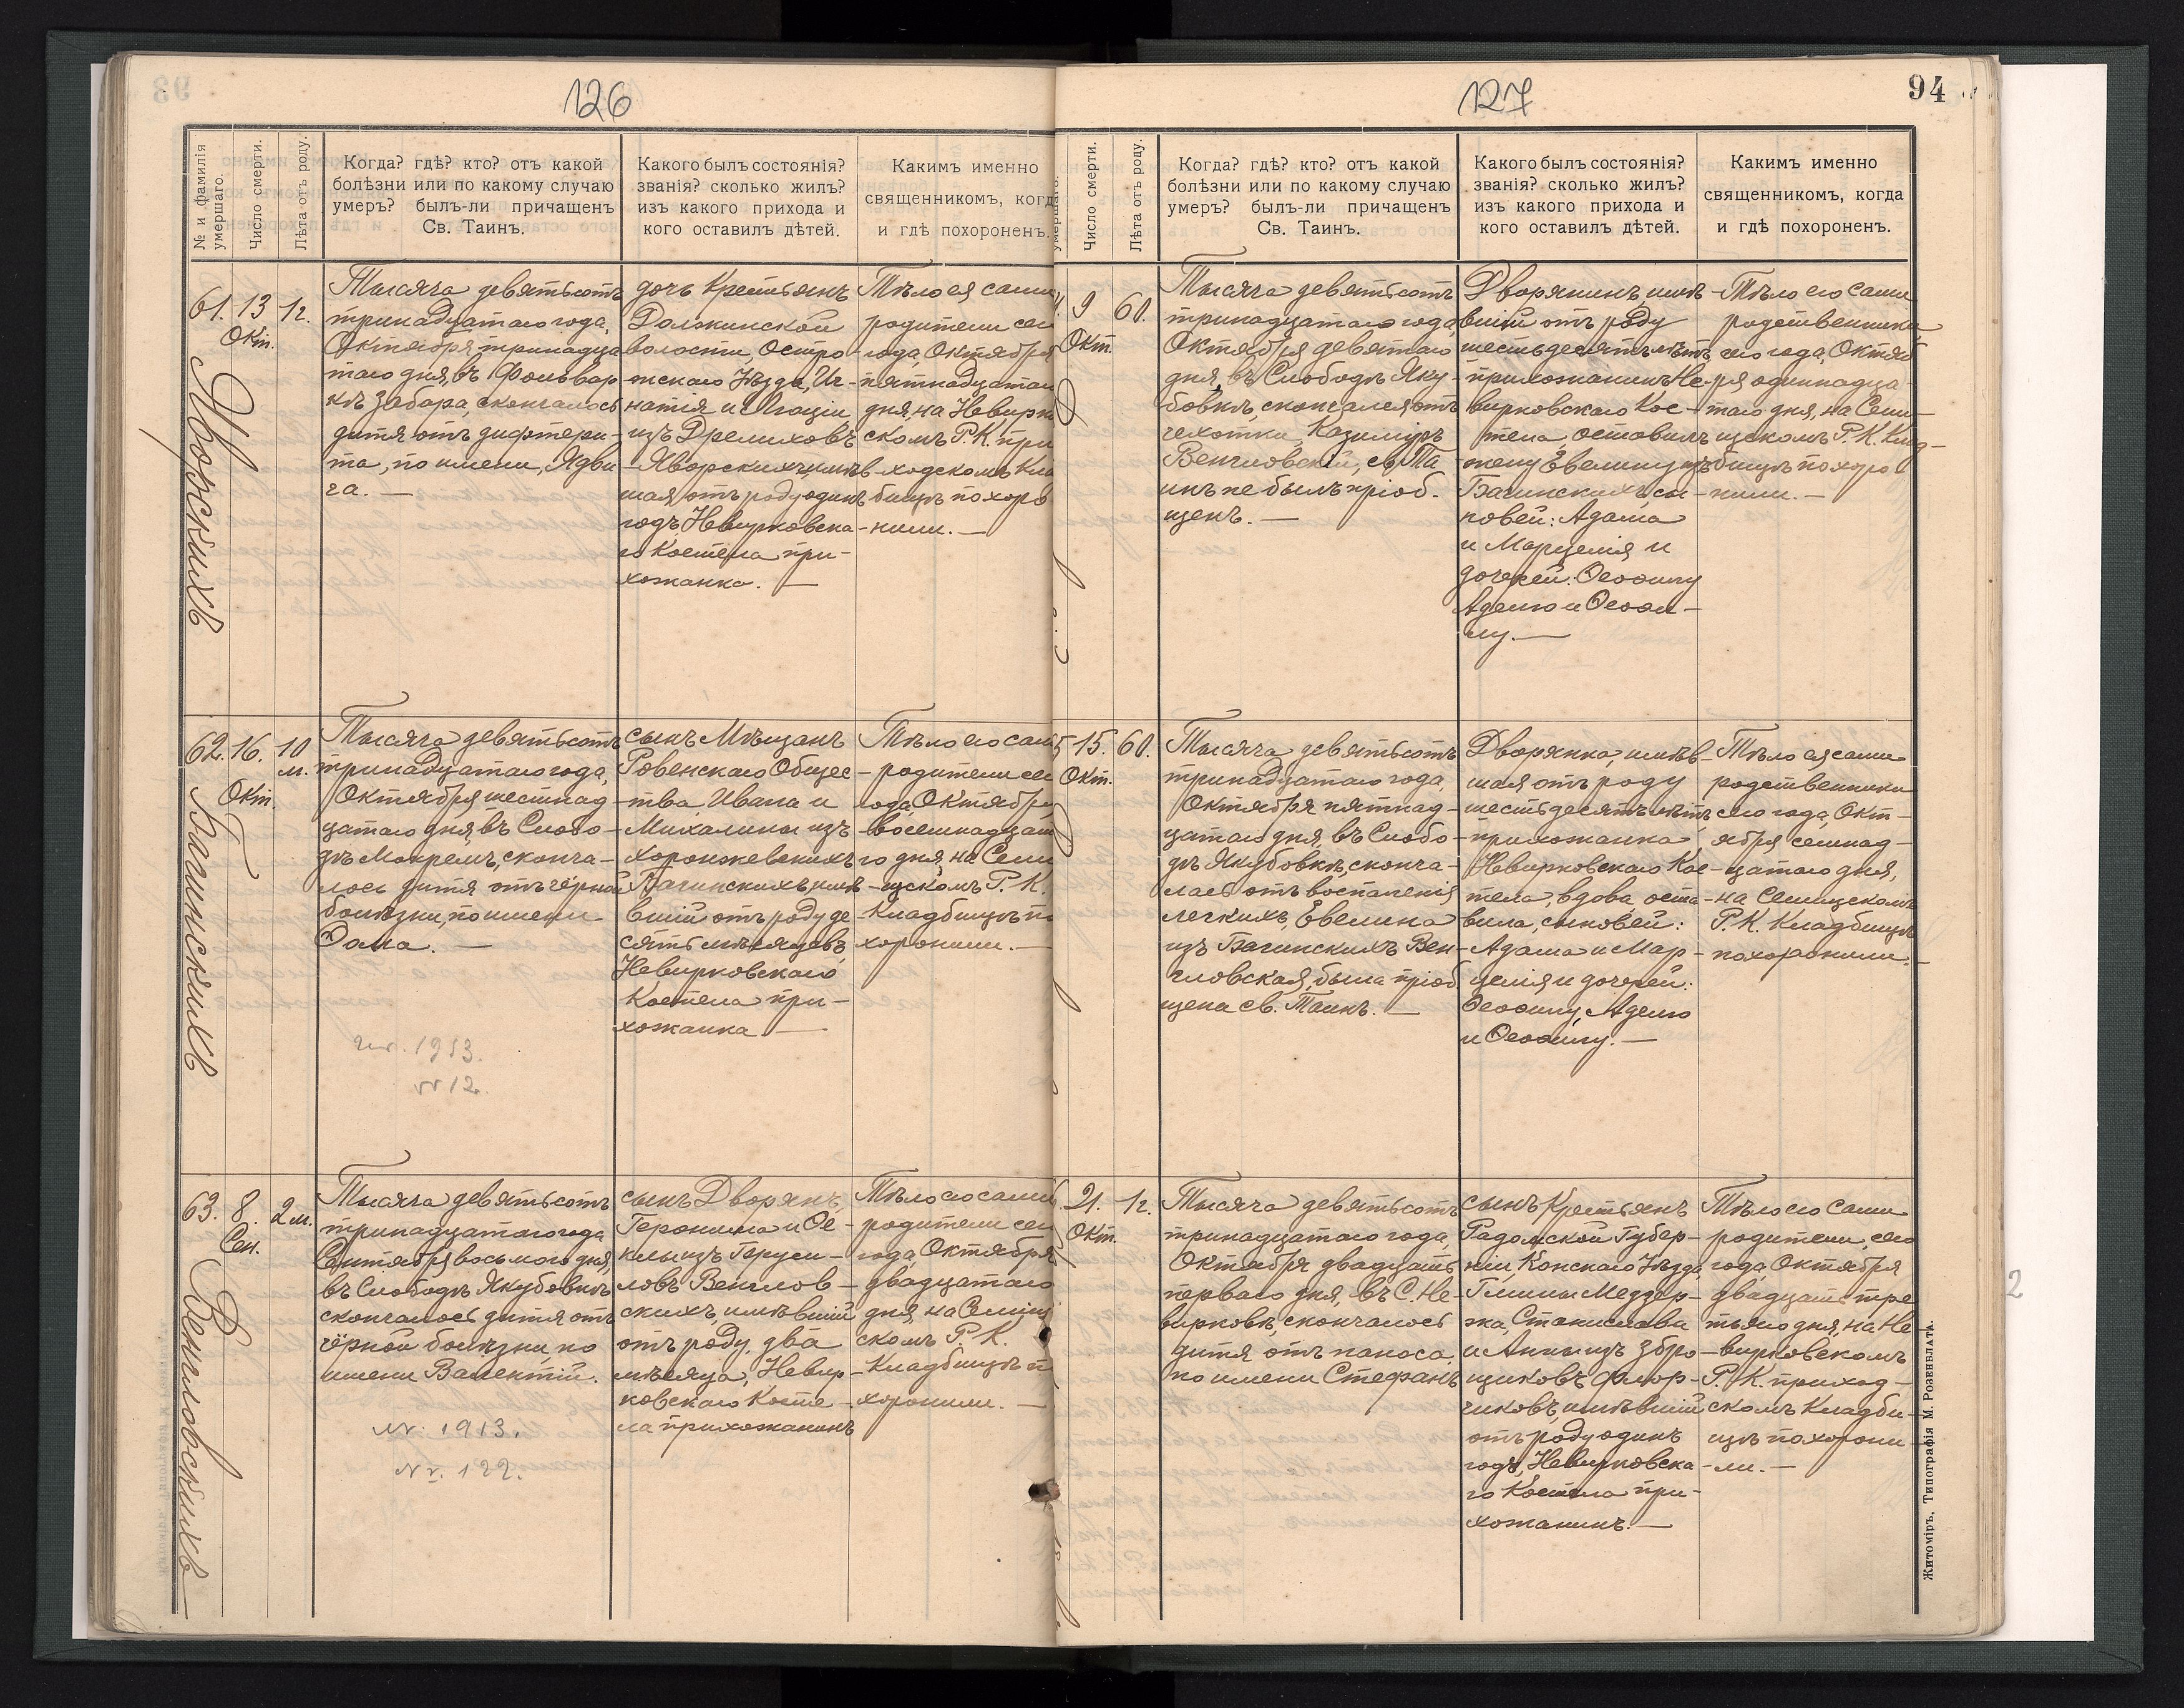 126
№ и фамилія умершаго.
Число смерти.
Лѣта отъ роду.
Когда? гдѣ? кто? отъ какой
болѣзни или по какому случаю
умеръ? былъ-ли причащенъ
Св. Таинъ.
Какого былъ состоянія?
званія? сколько жилъ?
изъ какого прихода и
кого оставилъ дѣтей.
Какимъ именно
священникомъ, когд
и гдѣ похороненъ.
61.
Яворскихъ
13
Окт.
1г.
Тысяча девятьсотъ
тринадцатаго года,
Октября тринадца
таго дня, въ Фольвар
кѣ Забара, скончалось
дитя отъ дифтери-
та, по имени, Ядви
га. —
дочь Крестьянъ
Должинской
волости, Остро-
жскаго Уѣзда, Иг-
натія и Люціи
изъ Дрелиховъ
Яворскихъ, имѣв-
шая отъ роду одинъ
годъ, Невирковска-
го Костела при-
хожанка. —
Тѣло ея сами
родители сег
года, Октября
пятнадцатаго
дня, на Невирко
скомъ Р. К. при
ходскомъ Кла
бищѣ похоро
нили. —
62.
Багинскихъ
16.
Окт.
10
м.
Тысяча девятьсотъ
тринадцатаго года,
Октября шестнад
цатаго дня, въ Слобо-
дѣ Мокремъ, сконча-
лось дитя отъ чёрной
болѣзни, по имени
Ѳома. —
гис. 1913.
№ 12.
сынъ Мѣщанъ
Ровенскаго Общес-
тва Ивана и
Михалины изъ
Хоронжевскихъ
Багинскихъ, имѣ-
вшій отъ роду де
сять мѣсяцевъ,
Невирковскаго
Костела при-
хожанка. —
Тѣло его сами
родители сег
года, Октября
восемнадцата
го дня, на Сели
щскомъ Р. К.
Кладбищѣ по
хоронили. —
63.
Венгловскихъ
8.
Сен.
2 м.
Тысяча девятьсотъ
тринадцатаго года
Сентября восьмого дня,
въ Слободѣ Якубовкѣ
скончалось дитя отъ
чёрной болѣзни, по
имени Валентій.
Nr. 1913.
Nr. 122.
сынъ Дворянъ,
Геронима и Ѳе-
клы изъ Геруси-
ловъ Венглов-
скихъ, имѣвшій
отъ роду два
мѣсяца, Невир-
ковскаго Косте-
ла прихожанинъ
Тѣло его сами
родители сег
года, Октября
двадцатаго
дня, на Селищ
скомъ Р. К.
Кладбищѣ п
хоронили. —
127
94
умершаго.
Число смерти.
Лѣта отъ роду.
Когда? гдѣ? кто? отъ какой
болѣзни или по какому случаю
умеръ? былъ-ли причащенъ
Св. Таинъ.
Какого былъ состоянія?
званія? сколько жилъ?
изъ какого прихода и
кого оставилъ дѣтей.
Какимъ именно
священникомъ, когда
и гдѣ похороненъ.
9
Окт.
60.
Тысяча девятьсотъ
тринадцатаго года,
Октября девятаго
дня, въ Слободѣ Яку-
бовкѣ, скончался отъ
чехотки, Казиміръ
Венгловскій, св. Та
инъ не былъ пріоб-
щенъ. —
Дворянинъ, имѣ-
вшій отъ роду
шестьдесятъ лѣтъ,
прихожанинъ Не-
вирковскаго Кос-
тела, оставилъ
жену Евелину изъ
Багинскихъ, сы-
новей: Адама
и Марцелія и
дочерей: Ѳеофилу
Аделю и Ѳеофи-
лу. —
Тѣло его сами
родственники,
сего года, Октяб
ря одиннадца-
таго дня, на Сели-
щскомъ Р. К. Клад-
бищѣ похоро
нили. —
15.
Окт.
60.
Тысяча девятьсотъ
тринадцатаго года,
Октября пятнад-
цатаго дня, въ Слобо-
дѣ Якубовкѣ, сконча-
лась отъ воспаленія
легкихъ, Евелина
изъ Багинскихъ Вен-
гловская, была пріоб
щена св. Таинъ. —
Дворянка, имѣв-
шая отъ роду
шестьдесятъ лѣтъ,
прихожанка
Невирковскаго Кос-
тела, вдова, оста-
вила, сыновей:
Адама и Мар-
целія и дочерей:
Ѳеофилу, Аделю
и Ѳеофилу. —
Тѣло ея сами
родственники
сего года, Окт-
ября семнад-
цатаго дня,
на Селищскомъ
Р. К. Кладбищѣ
похоронили. —
21.
Окт.
1г.
Тысяча девятьсотъ
тринадцатаго года,
Октября двадцать
перваго дня, въ С. Не-
вирковѣ, скончалось
дитя отъ паноса,
по имени Стефанъ
сынъ Крестьянъ
Радомской Губер-
ніи, Конскаго Уѣзда,
Гмины Меддер-
жа, Станислава
и Анны изъ Збро-
щиковъ Флор-
чиковъ, имѣвшій
отъ роду одинъ
годъ, Невирковска-
го Костела при-
хожанинъ. —
Тѣло его сами
родители, сего
года, Октября
двадцать тре
тьяго дня, на Не
вирковскомъ
Р. К. приход-
скомъ Кладби-
щѣ похорони-
ли. —
2
Житоміръ, Типографія М. Розенблата.